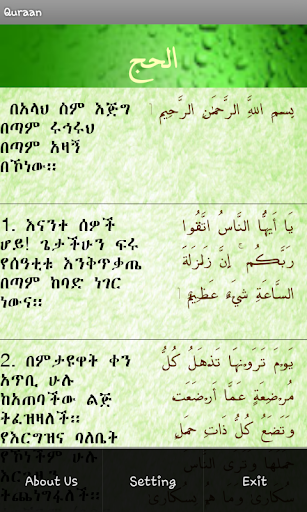 Quraan
الحج
በአላህ ስም እጅግ
በጣም ሩኅሩህ
በጣም አዛኝ
በኾነው፡፡
بِسْمِ اللَّهِ الرَّحْمَٰنِ الرَّحِيمِ
1. እናንተ ሰዎች
ሆይ! ጌታችሁን ፍሩ
የሰዓቲቱ እንቅጥቃጤ
በጣም ከባድ ነገር
ነውና፡፡
يَا أَيُّهَا النَّاسُ اتَّقُوا
رَبَّكُمْ ۚ إِنَّ زَلْزَلَةَ
السَّاعَةِ شَيْءٌ عَظِيمٌ
2. በምታዩዋት ቀን
አጥቢ ሁሉ
ከአጠባችው ልጅ
ትፈዝዛለች፡፡
የእርግዝና ባለቤት
የኾነችም ሁሉ
ትጨነግፋለች፡፡
يَوْمَ تَرَوْنَهَا تَذْهَلُ كُلُّ
مُرْضِعَةٍ عَمَّا أَرْضَعَتْ
وَتَضَعُ كُلُّ ذَاتِ حَمْلٍ
حَمْلَهَا وَتَرَى النَّاسَ
سُكَارَىٰ وَمَا هُم بِسُكَارَىٰ
About Us
Setting
Exit